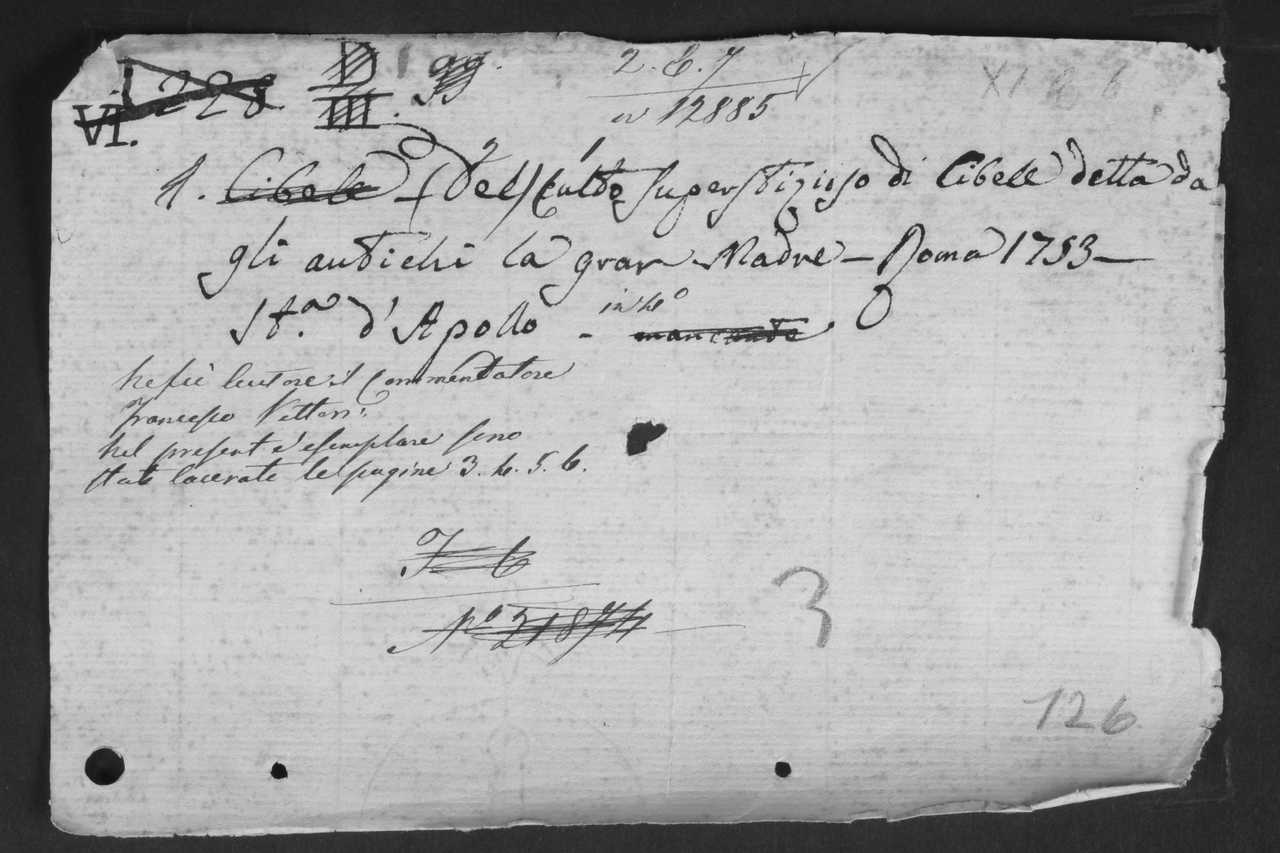 I 228 D 1 gg. 2. E. 7 XI B 6
VI. III. 12885
1. Cibele — (Del) Culto superstizioso di Cibele detta da
gli antichi la gran Madre — Roma 1753 —
St.ª d'Apollo - in 4º mancante
Ne fù lautore il Commentatore
Francesco Vettori
Nel presente esemplare sono
state lacerate le pagine 3. 4. 5. 6.
Nº 21874
3
126